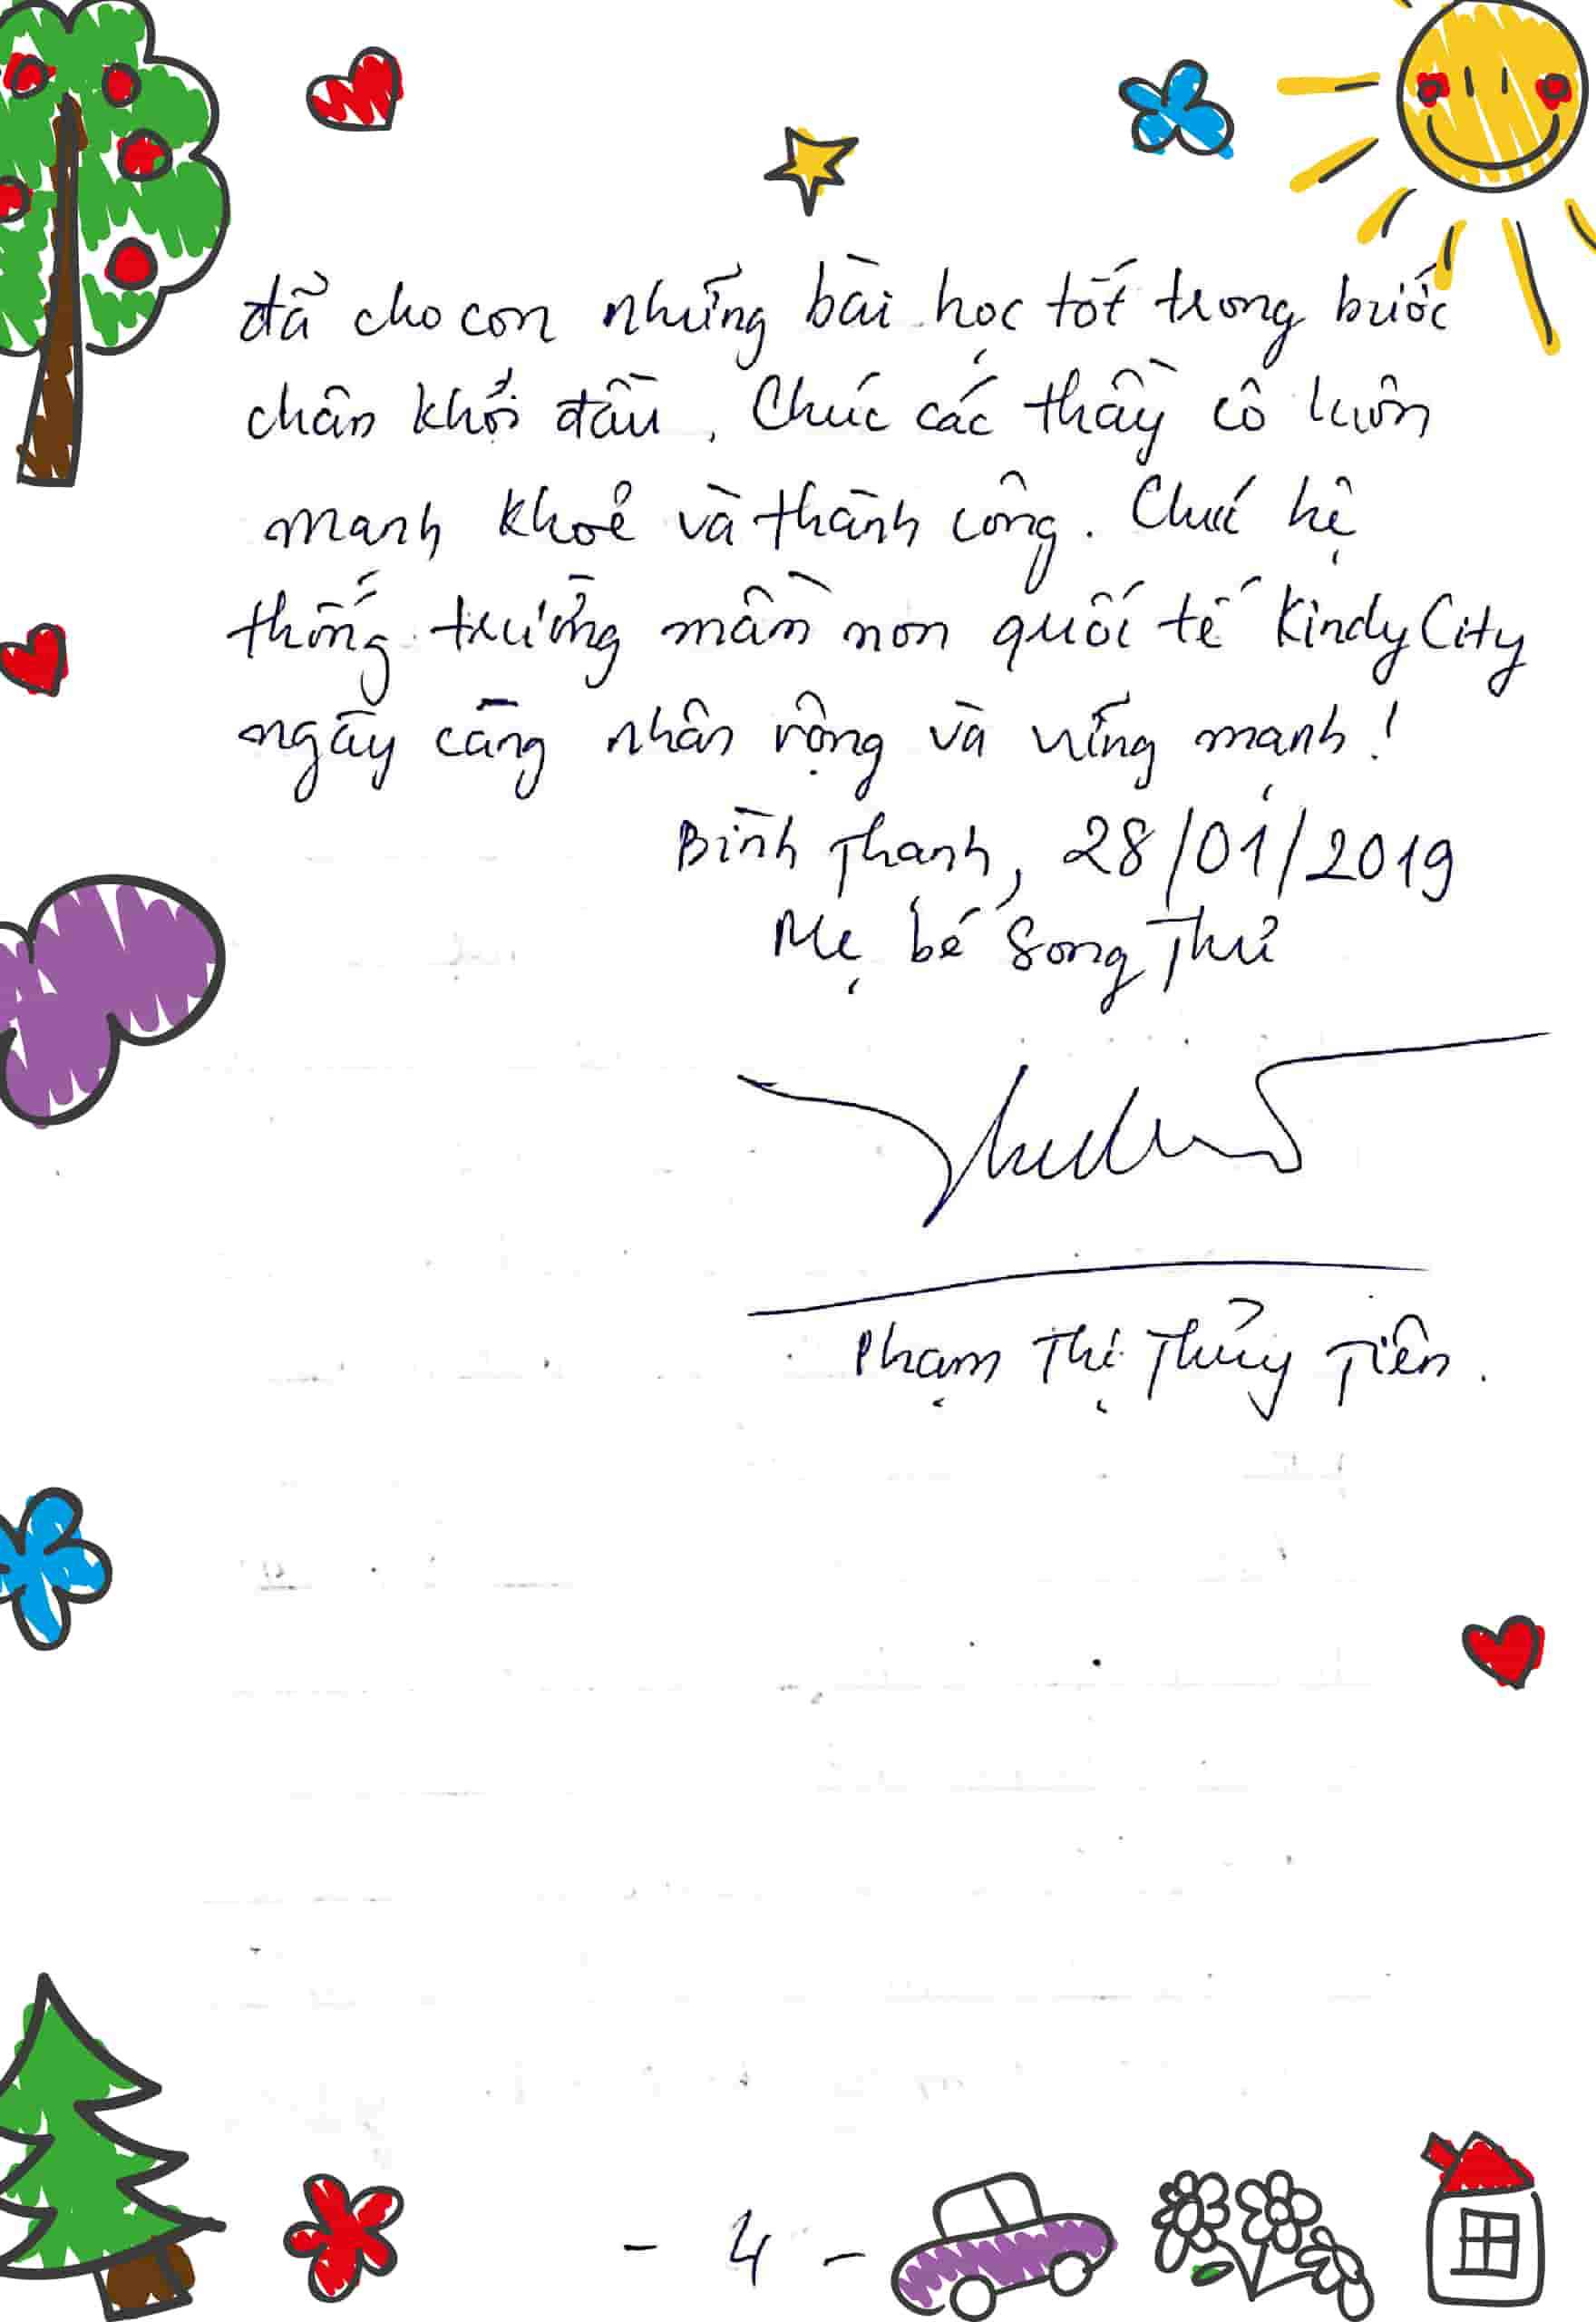 đã cho con những bài học tốt trong bước
chân khởi đầu. Chúc các thầy cô luôn
mạnh khoẻ và thành công. Chúc hệ
thống trường mầm non quốc tế KindyCity
ngày càng nhân rộng và vững mạnh!
Bình Thạnh, 28/01/2019
Mẹ bé Song Thư
Phạm Thị Thủy Tiên.
- 4 -